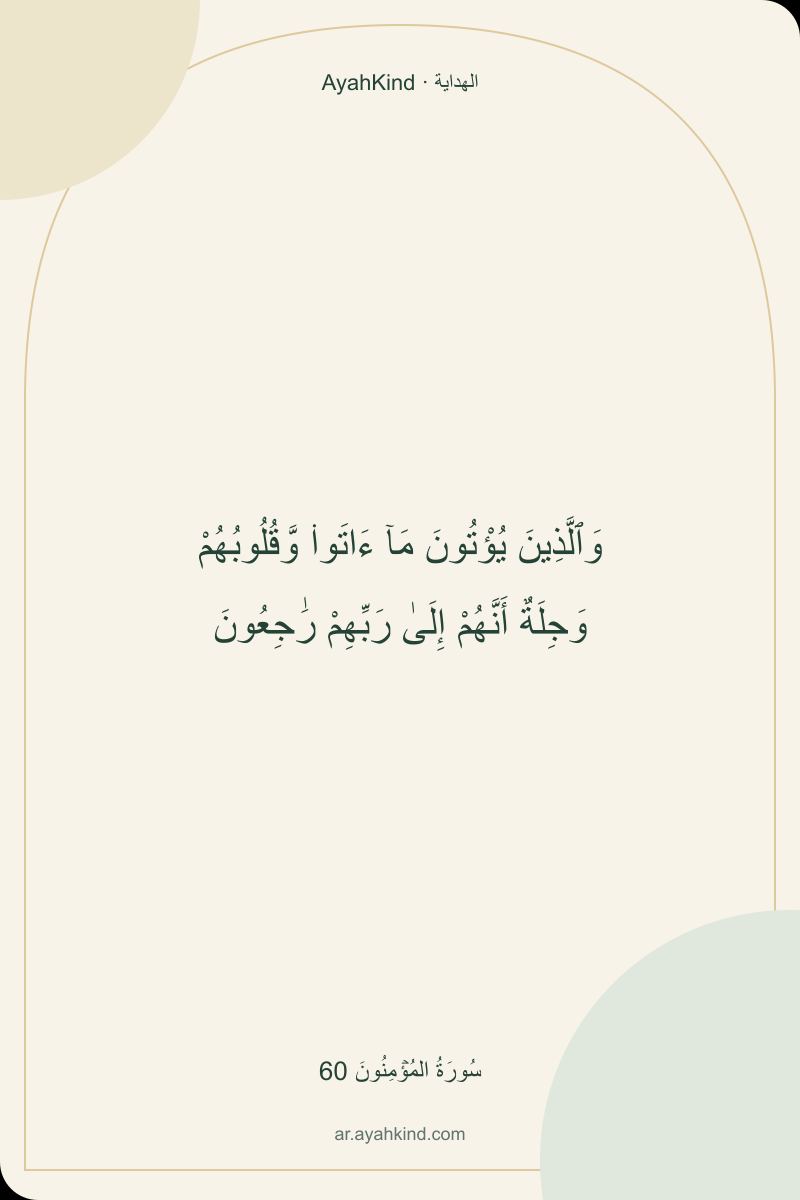 AyahKind · الهداية
وَٱلَّذِينَ يُؤْتُونَ مَآ ءَاتَوا۟ وَّقُلُوبُهُمْ
وَجِلَةٌ أَنَّهُمْ إِلَىٰ رَبِّهِمْ رَٰجِعُونَ
سُورَةُ المُؤۡمِنُونَ 60
ar.ayahkind.com